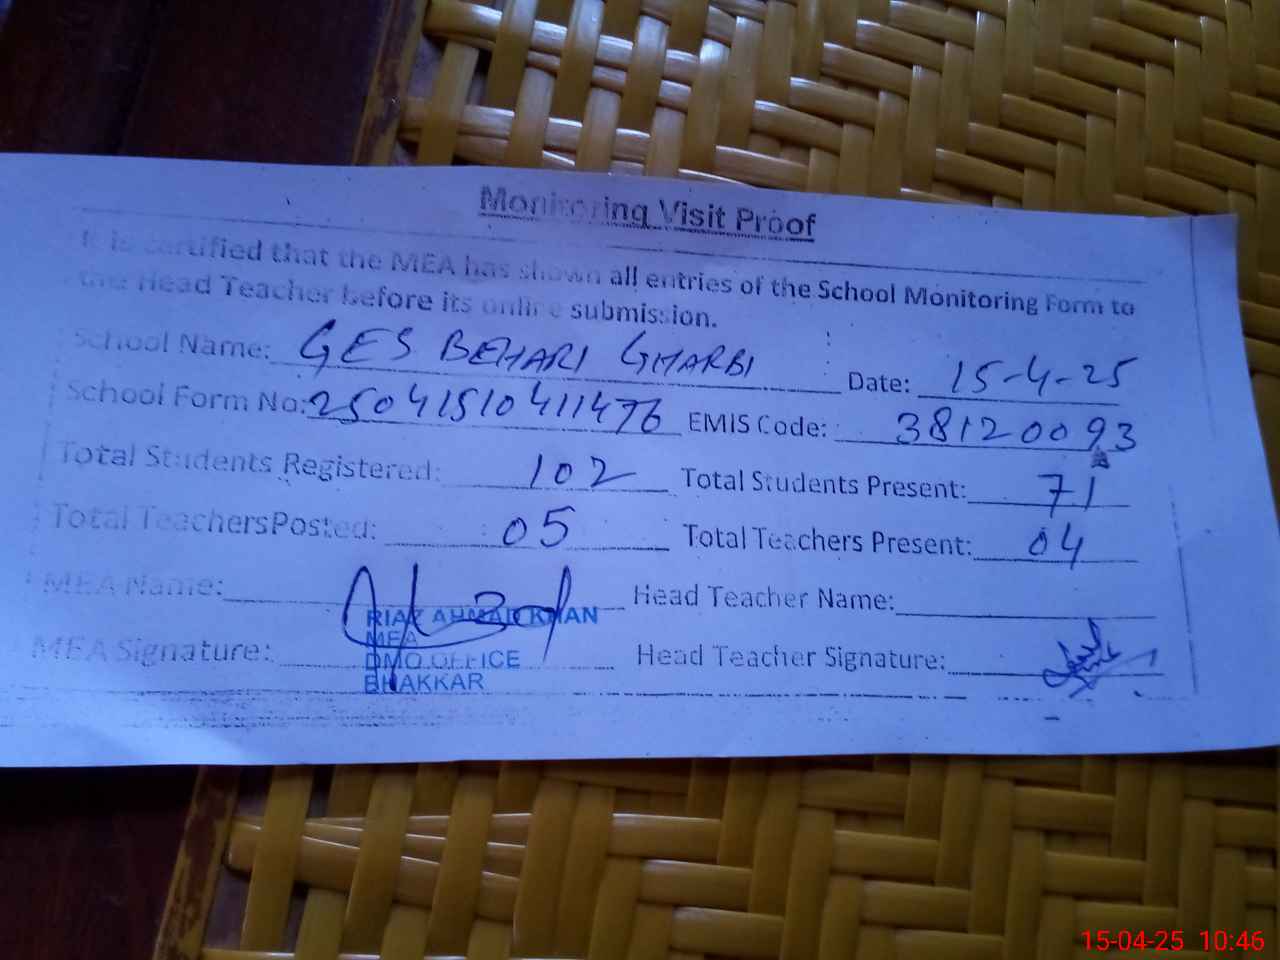 Monitoring Visit Proof
It is certified that the MEA has shown all entries of the School Monitoring Form to
the Head Teacher before its online submission.
School Name: GES BEHARI GHARBI Date: 15-4-25
School Form No: 25041510411476 EMIS Code: 38120093
Total Students Registered: 102 Total Students Present: 71
Total TeachersPosted: 05 Total Teachers Present: 04
MEA Name: Head Teacher Name:
RIAZ AHMAD KHAN
MEA
MEA Signature: Head Teacher Signature:
DMO OFFICE
BHAKKAR
15-04-25 10:46